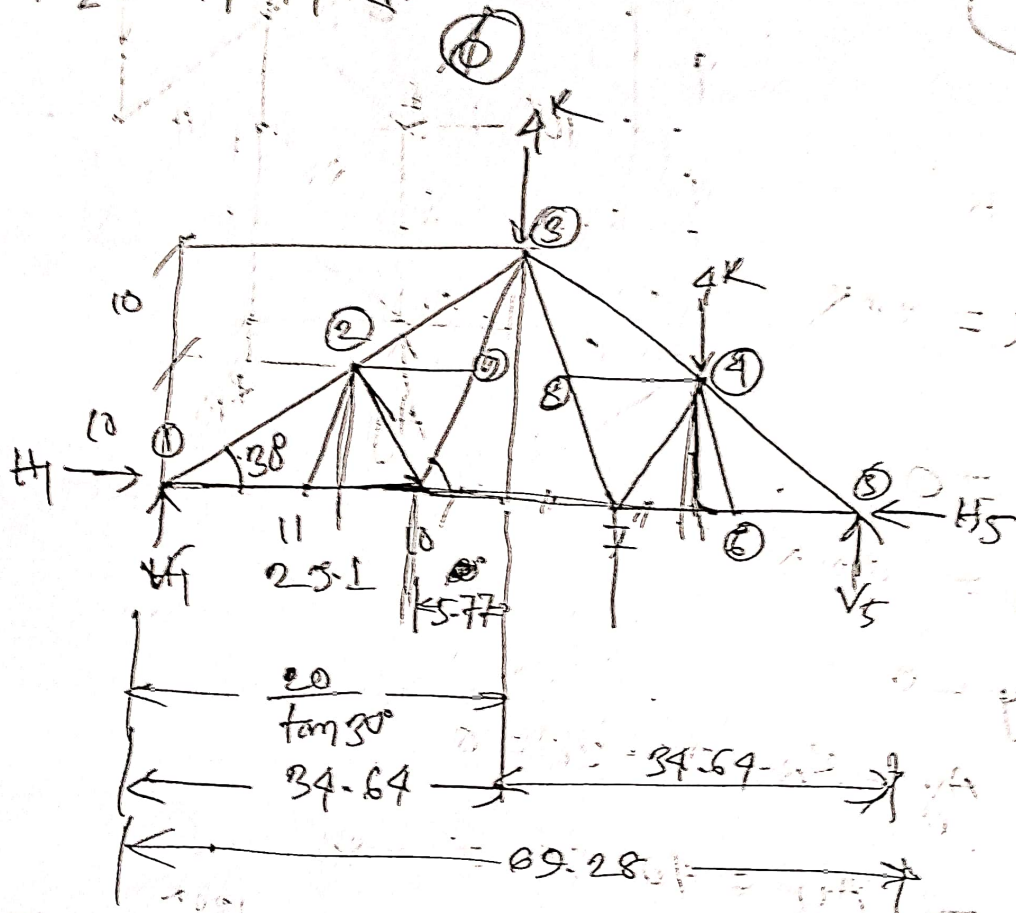 ①
4K
③
10
4K
②
④
9
8
10
①
38
H1
⑤
H5
11
10
⑥
V1
23.1
5.77
V5
20
tan 30°
34.64
34.64
69.28